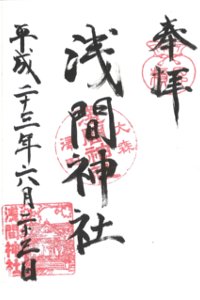 奉拝
浅間神社
平成二十三年六月二十三日
大森
浅間神社